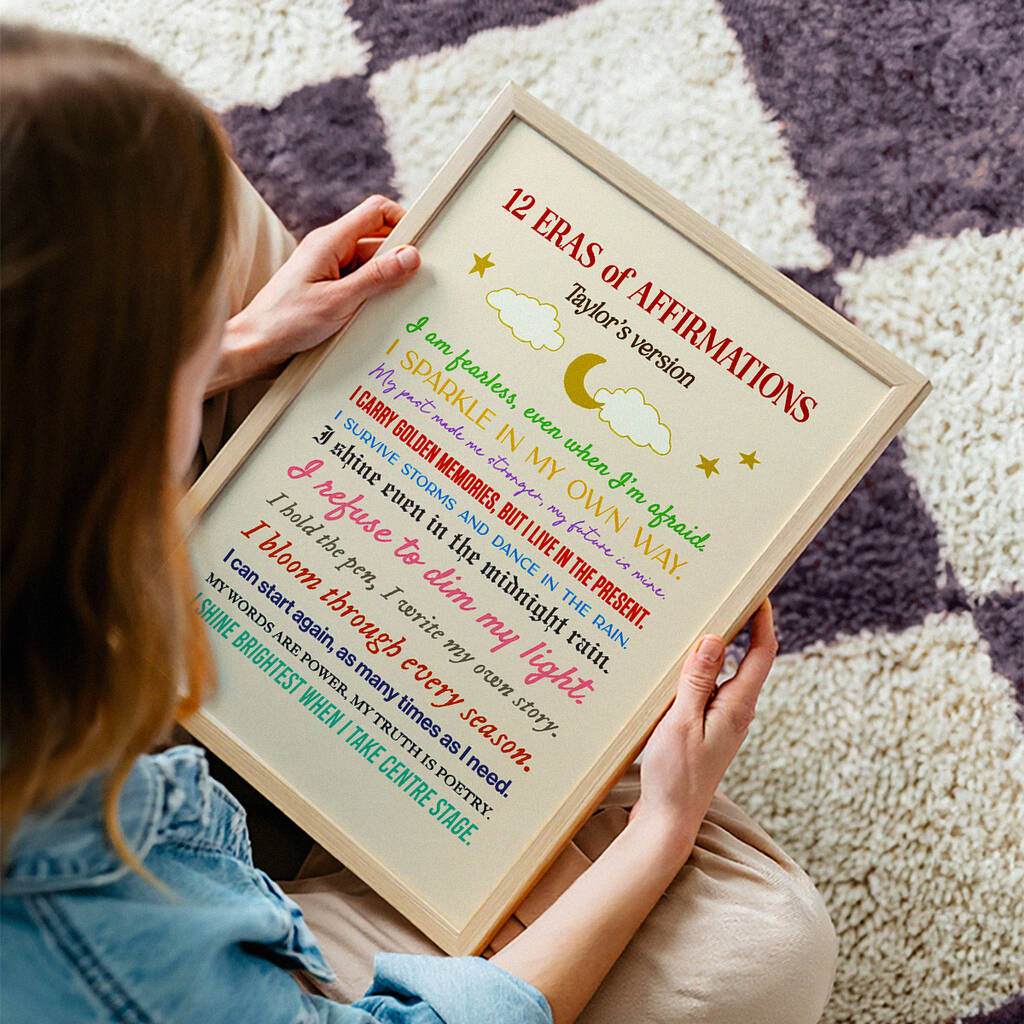 12 ERAS of AFFIRMATIONS
Taylor's version
I am fearless, even when I'm afraid.
I SPARKLE IN MY OWN WAY.
My past made me stronger, my future is mine.
I CARRY GOLDEN MEMORIES, BUT I LIVE IN THE PRESENT.
I SURVIVE STORMS AND DANCE IN THE RAIN.
I shine even in the midnight rain.
I refuse to dim my light.
I hold the pen, I write my own story.
I bloom through every season.
I can start again, as many times as I need.
MY WORDS ARE POWER, MY TRUTH IS POETRY.
I SHINE BRIGHTEST WHEN I TAKE CENTRE STAGE.